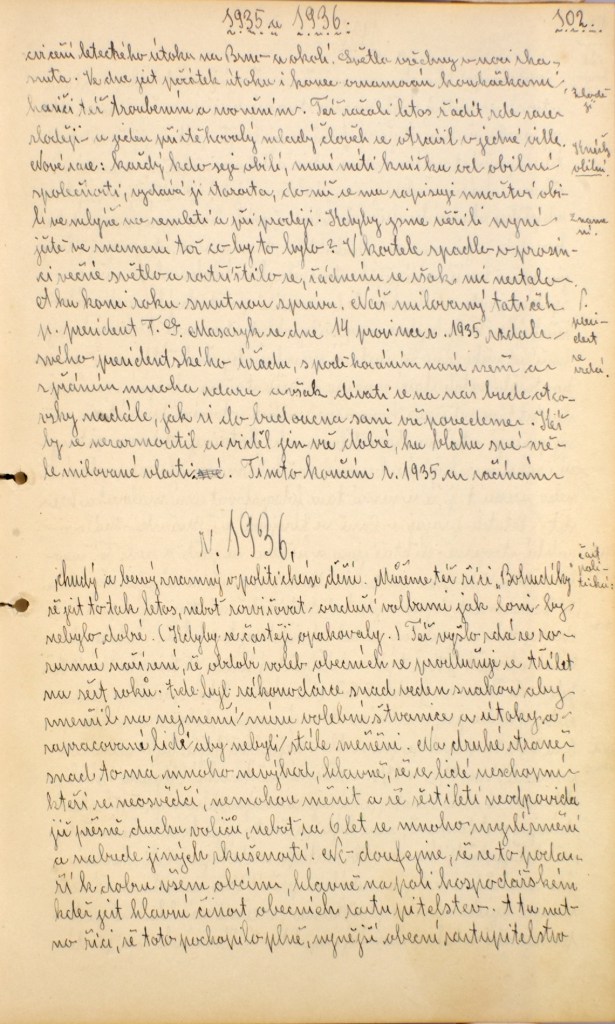 1935 a 1936.
102.
cvičení leteckého útoku na Brno a okolí. Světla všechny v noci zha-
snuta. Ve dne jest počátek útoku i konec oznamován houkačkami
hasiči též troubením a zvoněním. Též začali letos řádit zde zase
zloději a jeden přistěhovalý mladý člověk se otrávil v jedné ville.
Zloděj
ři
Nové zase: každý kdo seje obilí, musí míti knížku od obilní
Knížky
obilní
společnosti, vydává ji starosta, do níž se mu zapisuje množství obi-
lí ve mlýně na semletí a při prodeji. Kdyby jsme věřili nyní
Zname
ní.
ještě ve znamení tož co by to bylo? V kostele spadlo v prosin-
ci věčné světlo a roztříštilo se, žádnému se však nic nestalo.
A ku konci roku smutnou zprávu. Náš milovaný tatíček
p. president T. G. Masaryk se dne 14 prosince r. 1935 vzdal
P.
presi-
dent
se
vzdá.
svého presidentského úřadu, s poděkováním nám všem a
s přáním mnoha zdaru avšak dívati se na nás bude otco-
vsky nadále, jak si do budoucna sami zde povedeme. Kéž
by se nezarmoutil a viděl jen vše dobré, ku blahu své vře-
le milované vlasti. Tímto končím r. 1935 a začínám
R. 1936,
chudý a bezvýznamný v politickém dění. Můžeme též říci „Bohudíky"
část
poli-
tická:
že jest to tak letos, neboť rozviřovat ovzduší volbami jak loni by
nebylo dobré. (Kdyby se častěji opakovaly.) Též vyšlo zdá se ro-
zumné nařízení, že období voleb obecních se prodlužuje ze tří let
na šest roků. Zde byl zákonodárce snad veden snahou aby
zmenšil na nejmenší míru volební štvanice a útoky a
zapracované lidé aby nebyli stále měněni. Na druhé straně
snad to má mnoho nevýhod, hlavně, že se lidé neschopní
kteří se neosvědčí, nemohou měnit a že šestiletí neodpovídá
již přesně duchu voličů, neboť za 6 let se mnoho myslí změní
a nabude jiných zkušeností. No doufejme, že se to poda-
ří k dobru všem obcím, hlavně na poli hospodářském
kdež jest hlavní činost obecních zastupitelstev. A tu nut-
no říci, že toto pochopilo plně, nynější obecní zastupitelstvo